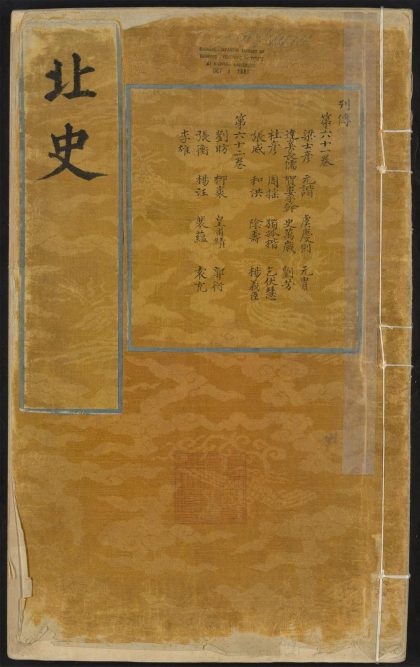 列傳
第六十一卷
梁士彥 元諧 虞慶則 元胄
達奚長儒 賀婁子幹 史萬歲 劉芳
杜彥 周搖 獨孤楷 乞伏慧
張威 和洪 陰壽 楊義臣
第六十二卷
劉昉 柳裘 皇甫績 郭衍
張衡 楊汪 裴蘊 袁充
李雄
北史
CHINESE-JAPANESE LIBRARY OF
HARVARD-YENCHING INSTITUTE
AT HARVARD UNIVERSITY